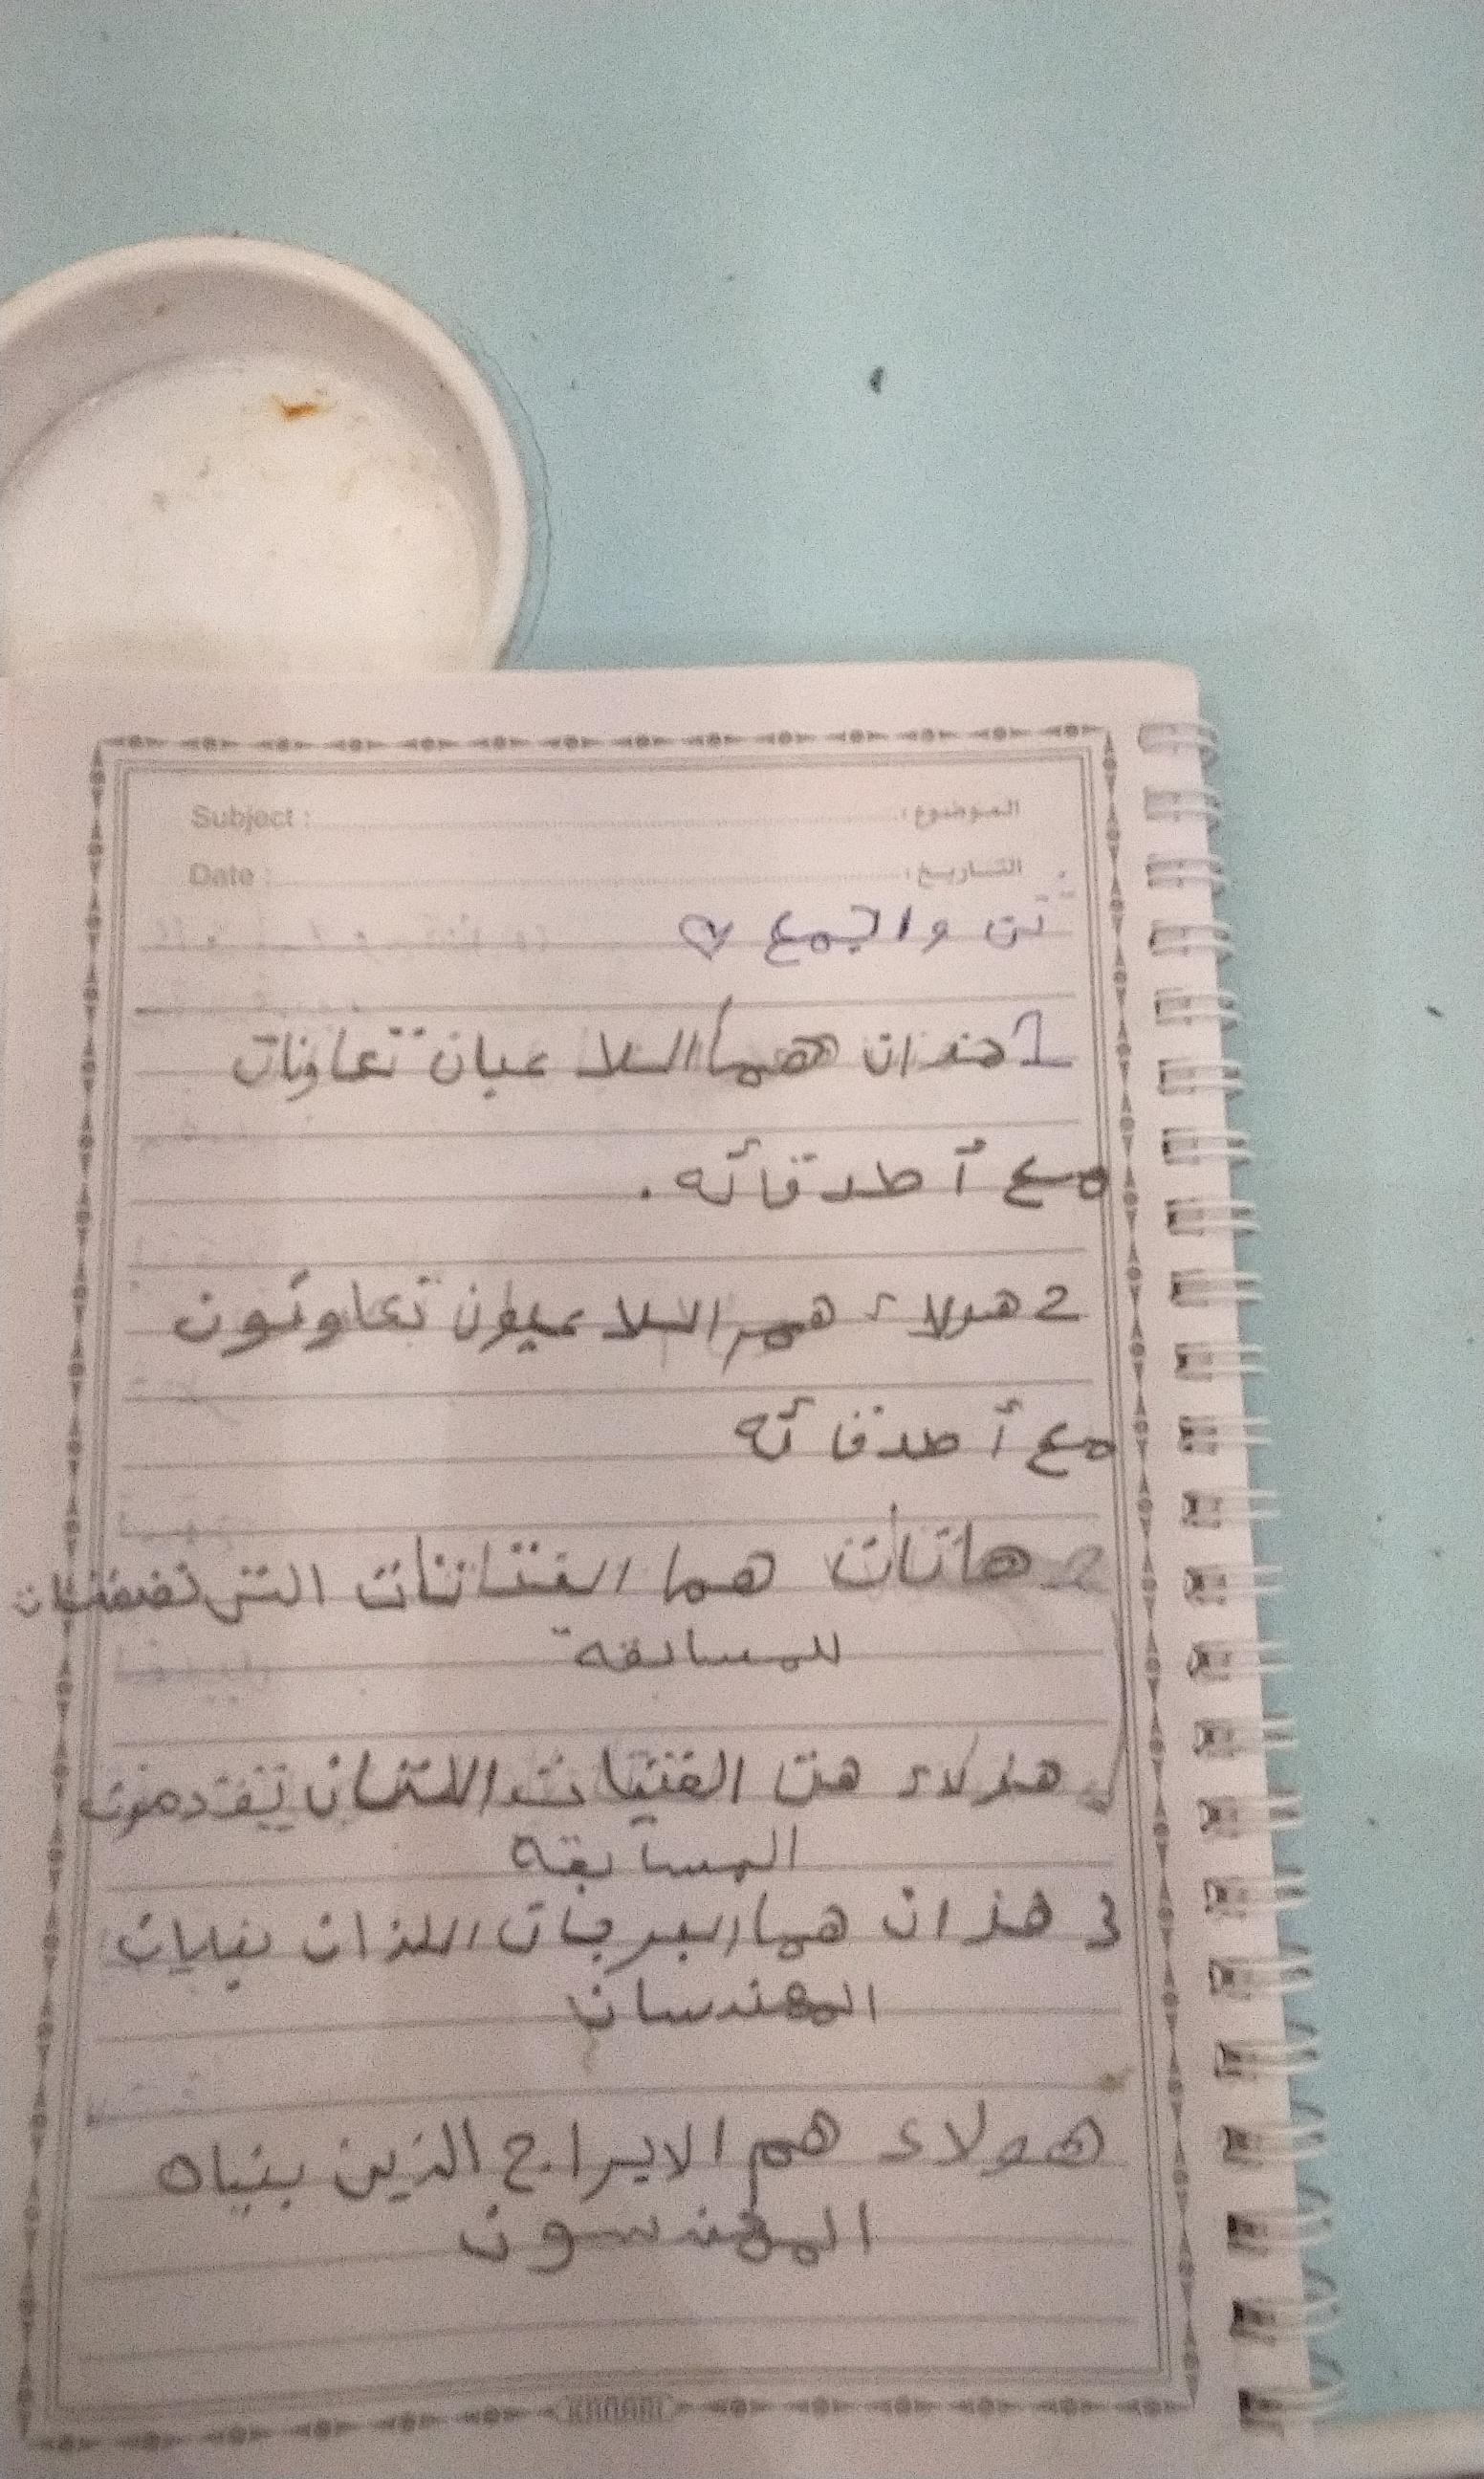 Subject : الموضوع :
Date : التاريخ :
ثن والجمع
1 هذان هما اللا عبان تعاونان
مع أ صدقائه .
2 هولاء هم اللا عبون تعاونون
مع أ صدقائه
2 هاتان هما الفتاتان التي
للمسابقه
هولاء هن الفتيات اللتان يتقدمون
المسابقه
3 هذان هما البرجان اللذان بنيان
المهندسان
هولاء هم الابراج الذين بنياه
المهندسون